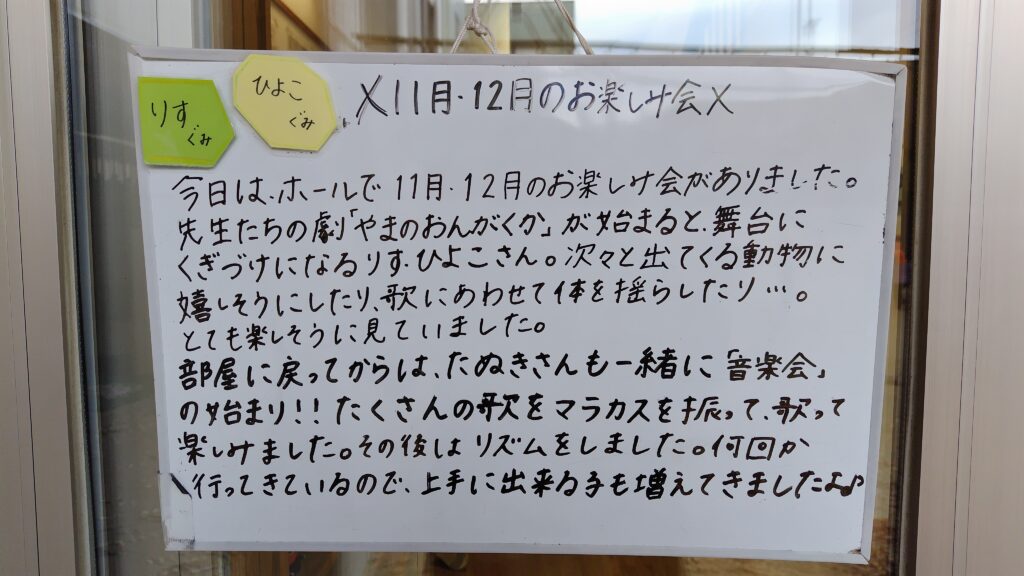 りすぐみ
ひよこぐみ
11月・12月のお楽しみ会
今日は、ホールで11月・12月のお楽しみ会がありました。
先生たちの劇「やまのおんがくか」が始まると、舞台に
くぎづけになるりす、ひよこさん。次々と出てくる動物に
嬉しそうにしたり、歌にあわせて体を揺らしたり…。
とても楽しそうに見ていました。
部屋に戻ってからは、たぬきさんも一緒に「音楽会」
の始まり!!たくさんの歌をマラカスを振って、歌って
楽しみました。その後はリズムをしました。何回か
行ってきているので、上手に出来る子も増えてきましたよ♪